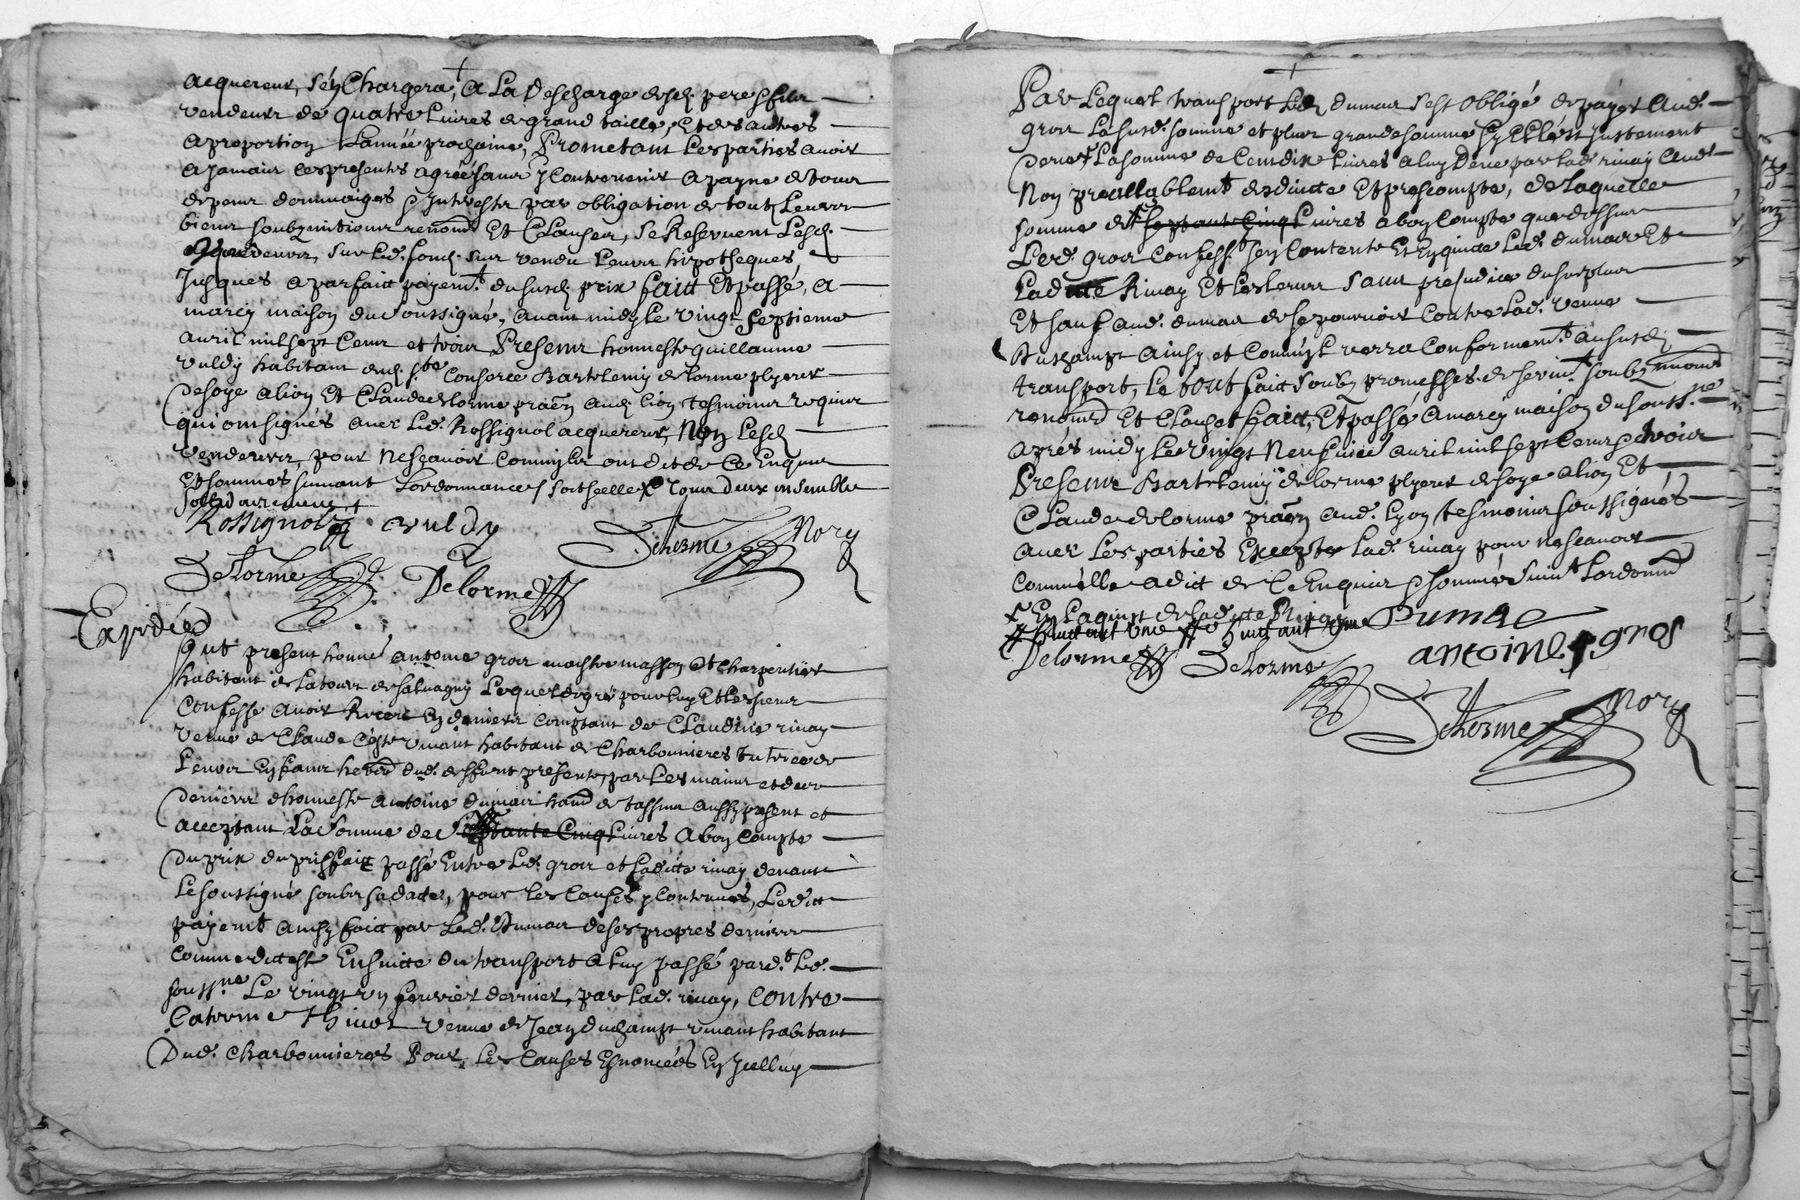 acquereur, s'en Chargera, a La descharge desd. pere et fils
vendeurs de quatre Livres de grand taille, Et des autres
a proportion Lannée prochaine, Prometant Les parties avoir
a Jamais ces presents agrees sans y Contrevenir a payne de tous
despens dommaiges et Interests par obligation de touts Leurs
biens soubzmitions renond. Et Clauses, se Reservent Lesd.
vendeurs, sur Led. fond. sus vendu Leurs hipotheques
Jusques a parfaict payemt. du susd. prix faict Et passé, a
marcy maison du soussigné, avant midy le vingt septieme
avril mil sept Cens et trois Presens honneste guillaume
vuldy habitant dud. ste Consorce Barthelemy delorme plyeur
de soye a lion Et Claude delorme pratn. aud. lion tesmoins requis
qui ont signés avec Led. Rossignol acquereur, Non Lesd.
vendeurs, pour ne sçavoir comm'ils ont dit de Ce Enquis
Et sommes suivant Lordonnance / soit scellé x tous deux ensemble
sollidairement
Rossignol vuldy
Delorme Delorme Delorme Nory
Expediée
fut present honné antoine gros maistre masson Et charpentier
habitant de Latour de salvagny Lequel de gré pour luy Et Les siens
Confesse avoir Receu En deniers comptant de Claudine rivay
veuve de Claude vivant habitant de Charbonnieres tutrice de
Leurs Enfans herd. dud. deffunt presente, par Les mains et des
deniers d'honneste antoine dumas habnt. de tassins aussy present et
acceptant La somme de septante Cinq Livres a bon Compte
du prix du prisfaict passé Entre Led. gros et Laditte rivay devant
Le soussigné soubz sa datte, pour les causes y Contenues, Ledict
payemt. ainsy faict par Led. dumas de ses propres deniers
comme dit est Ensuitte du transport a Luy passé pard.t Led.
souss.né Le vingt un fevrier dernier, par Lad. rivay, Contre
Catrine Thivet veuve de Jean duchampt vivant habitant
dud. charbonnieres Pour Les Causes Enoncées En Jcelluy
Par Lequel transport Led. dumas s'est obligé de payer aud.
gros La susd. somme et plus grande somme
La somme de Cendix Livres a luy deue par lad. rivay
Non preallablemt. desduitte Et prescompte, de Laquelle
somme de septante Cinq Livres a bon Compte que dessus
Led. gros Confesse s'en Contente Et En quitte Led. dumas Et
Laditte Rivay Et Les Leurs sans prejudice du surplus
Et sauf aud. dumas de se pourvoir Contre Lad. veuve
duchampt ainsy et comm'il verra Conformemt. au susd.
transport, Le tout faict soubz promesses, de sermt. soubzmitions
renond Et Clauses faict, Et passé a marcy maison du souss.né
apres midy Le vingt Neufvieme avril mil sept Cens et trois
Presens Barthelemy delorme plyeur de soye a lion Et
Claude delorme pratn. aud. Lyon tesmoins soussignés
avec Les parties Excepte Lad. rivay pour ne sçavoir
comm'elle a dit de Ce Enquise et sommée suivt. Lordonnce
x En Laquit de Laditte Rivay
Dumas
antoine gros
Delorme Delorme
Delorme Nory